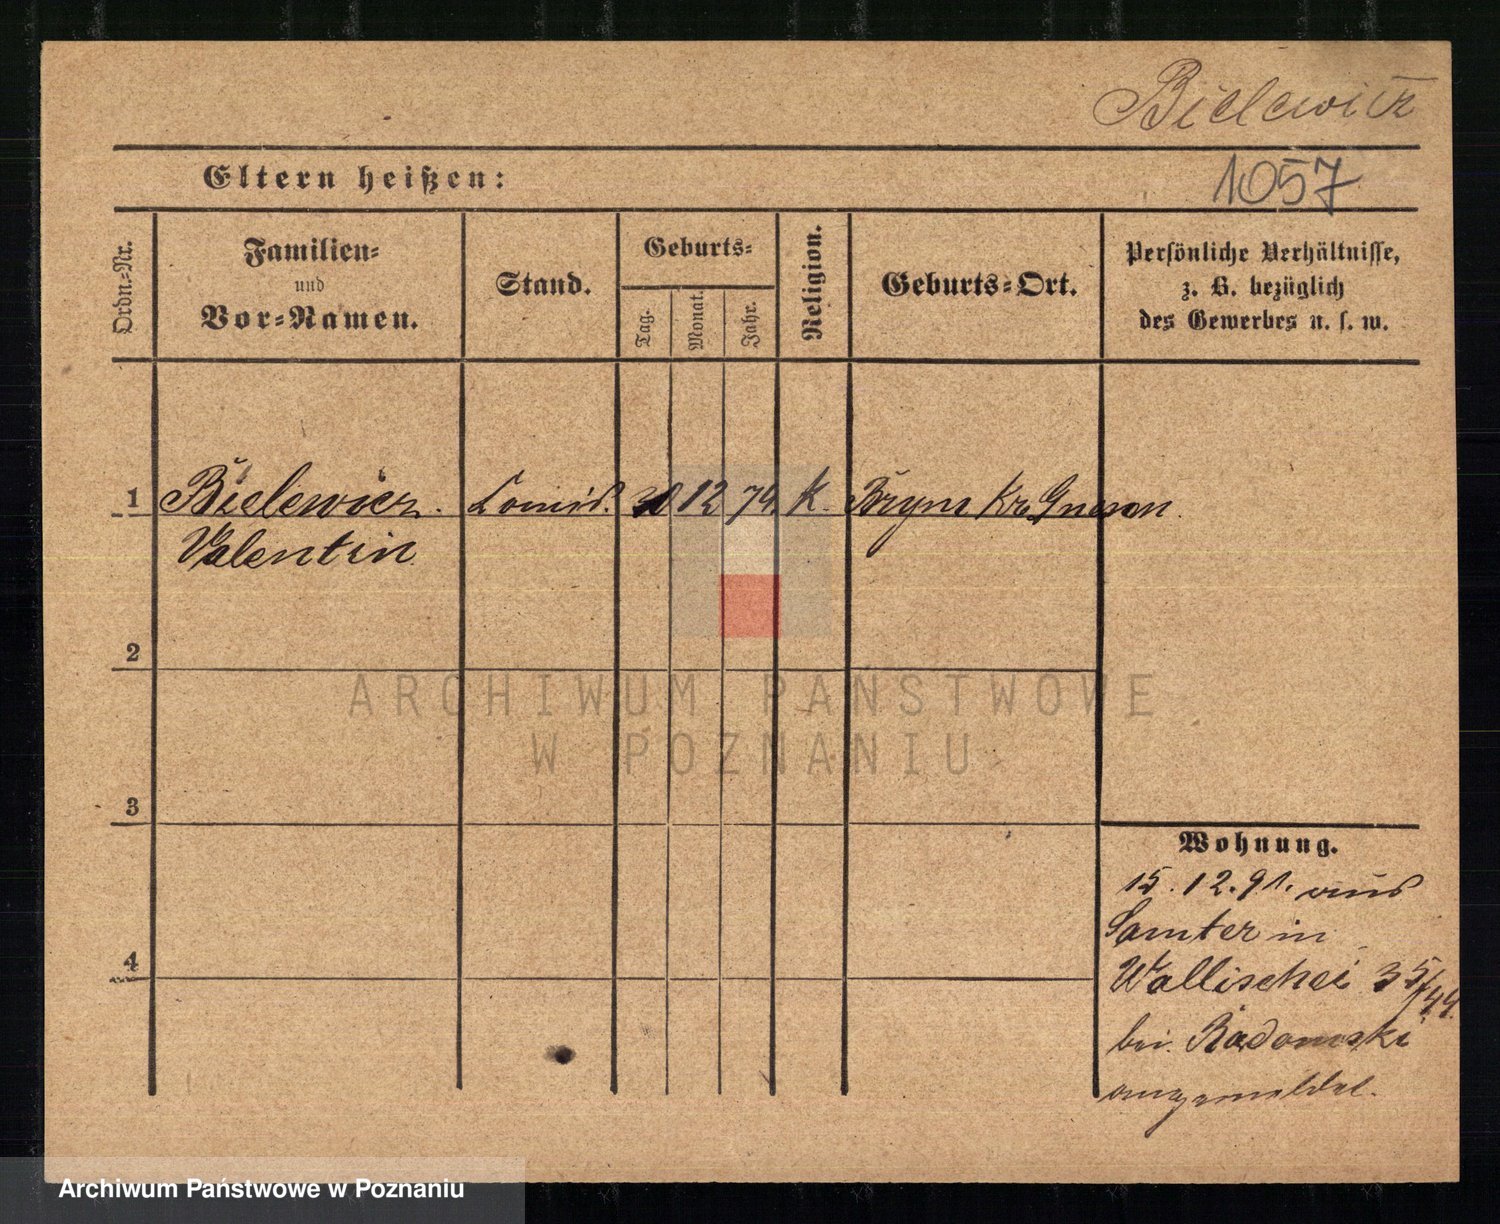 Bielewicz
Eltern heißen:
1057
Ordn.-Nr.
Familien-
und
Vor-Namen.
Stand.
Geburts-
Tag.
Monat.
Jahr.
Religion.
Geburts-Ort.
Persönliche Verhältnisse,
z. B. bezüglich
des Gewerbes u. s. w.
1
Bielewicz. Commis. 30 12 74. K. Kr. Gnesen.
Valentin
2
ARCHIWUM PAŃSTWOWE
W POZNANIU
3
Wohnung.
15. 12. 91. aus
Samter in
4
Wallischei 35/44.
bei Radomski
angemeldet.
Archiwum Państwowe w Poznaniu